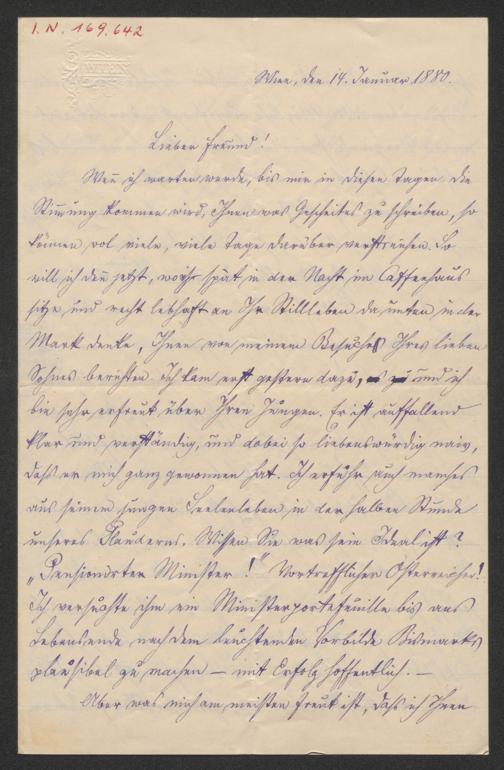 I. N. 169.642
WIEN
Wien, den 14. Januar 1880.
Lieber Freund!
Wen̄ ich warten werde, bis mir in diesen Tagen die
Stim̄ung kommen wird, Ihnen was Gescheites zu schreiben, so
können wol viele, viele Tage darüber verstreichen. So
will ich den̄ jetzt, wo ich spät in der Nacht im Caffeehaus
sitze und recht lebhaft an Ihr Stillleben da unten in der
Mark denke, Ihnen von meinem Besuche Ihres lieben
Sohnes berichten. Ich kam erst gestern dazu, und ich
bin sehr erfreut über Ihren Jungen. Er ist auffallend
klar und verständig, und dabei so liebenswürdig naiv,
daß er mich ganz gewonnen hat. Ich erfuhr auch manches
aus seinem jungen Seelenleben in der halben Stunde
unseres Plauderns. Wissen Sie was sein Ideal ist?
„Pensionirter Minister!" Vortrefflicher Österreicher!
Ich versuchte ihm ein Ministerportefeuille bis ans
Lebensende nach dem leuchtenden Vorbilde Bismarks
plausibel zu machen — mit Erfolg hoffentlich. —
Aber was mich am meisten freut ist, daß ich Ihnen